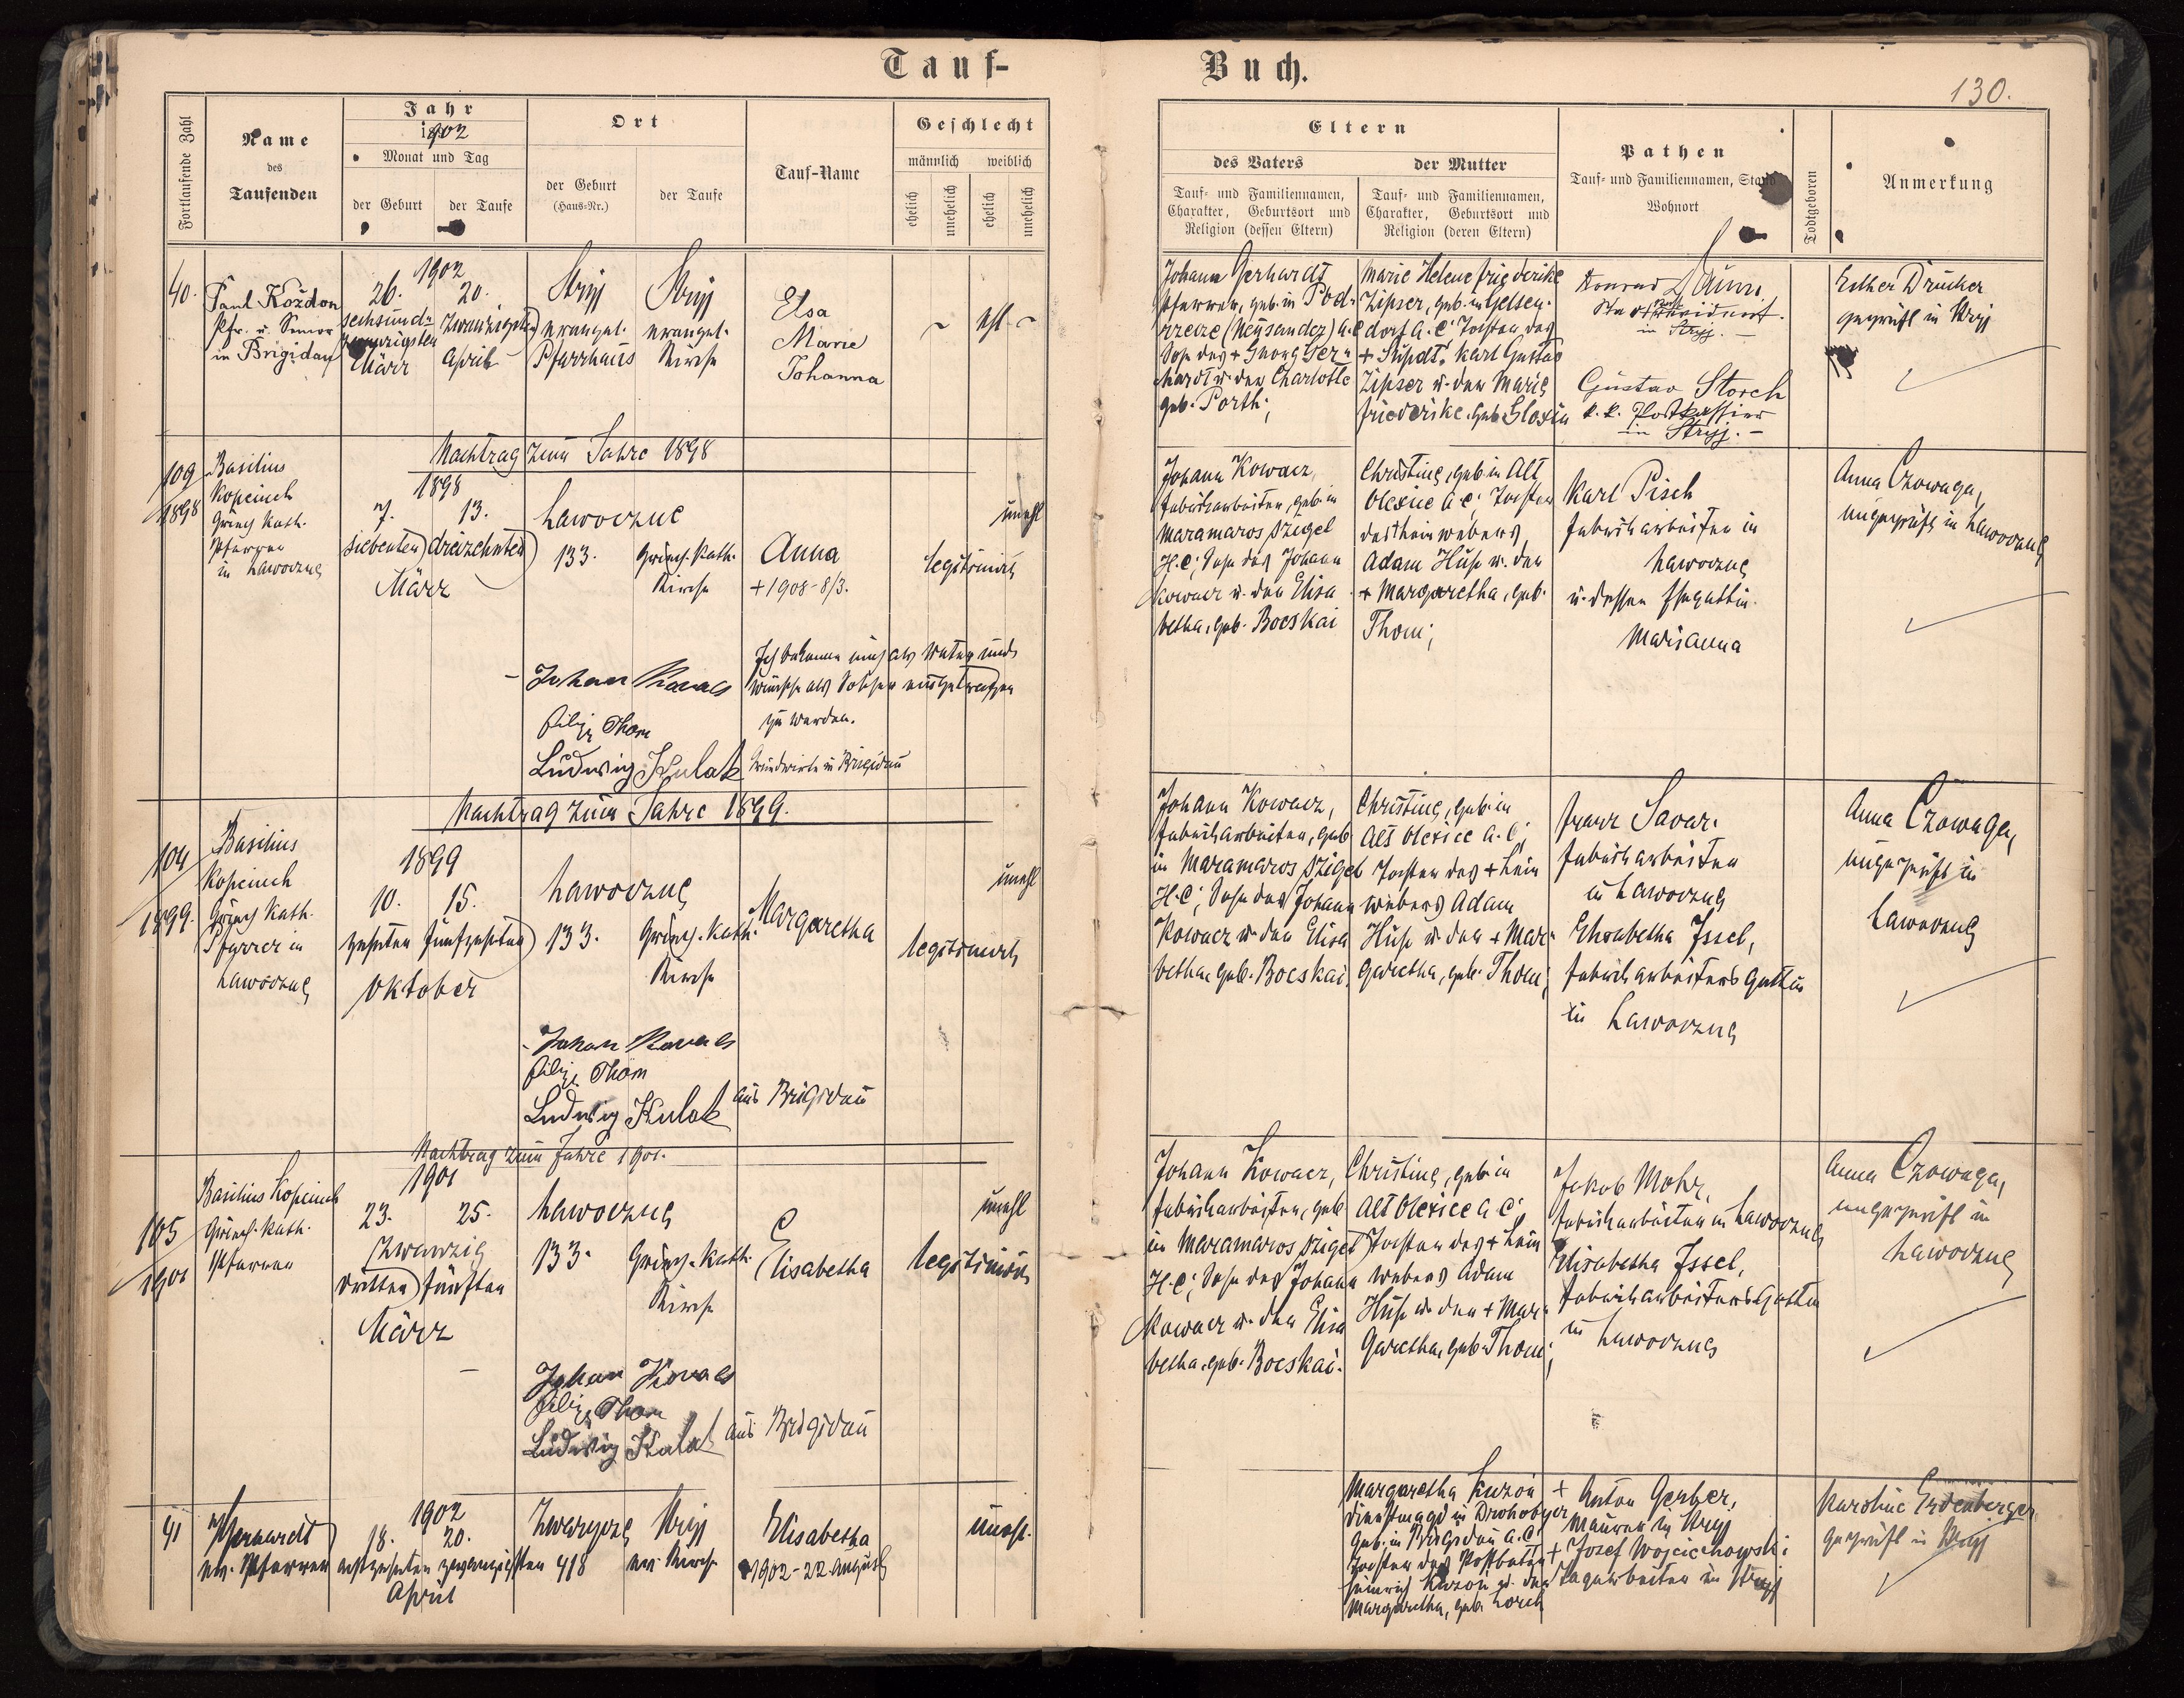 Tauf-
Buch.
130.
Fortlaufende Zahl
Name
des
Taufenden
Jahr
1902
Monat und Tag
der Geburt
der Taufe
Ort
der Geburt
(Haus-Nr.)
der Taufe
Tauf-Name
Geschlecht
männlich
weiblich
ehelich
unehelich
ehelich
unehelich
Eltern
des Vaters
Tauf- und Familiennamen,
Charakter, Geburtsort und
Religion (dessen Eltern)
der Mutter
Tauf- und Familiennamen,
Charakter, Geburtsort und
Religion (deren Eltern)
Pathen
Tauf- und Familiennamen, Stand
Wohnort
Todtgeboren
Anmerkung
40.
Paul Kożdon
Pfr. u. Senior
in Brigidau
1902
26. 20.
sechsund- zwanzigsten
zwanzigsten
März April
Stryj
evangel.
Pfarrhaus
Stryj
evangel.
Kirche
Elsa
Marie
Johanna
ehl.
Johann Gerhardt
Pfarrer, geb. in Pod-
rzecze (Neusandez) A.C
Sohn des + Georg Ger-
hardt u. der Charlotte
geb. Porth;
Marie Helene Friederike
Zipser, geb. in Gelsen-
dorf A.C. Tochter des
+ Supdt. Karl Gustav
Zipser u. der Marie
Friederike, geb. Gloxin
Konrad
in Stryj.
Gustav Storch
k. k. Postkassier
in Stryj.
Esther Drucker
geprüft in Stryj
Nachtrag zum Jahre 1898
109
1898
Basilius
Kopciuch
Griech. kath.
Pfarrer
in Lawoczne
1898
7. 13.
siebenten dreizehnten
März
Lawoczne
133.
Griech. kath.
Kirche
Anna
+ 1908-8/3.
unehl
legitimirt
Johann Kowacz,
Fabriksarbeiter, geb. in
Maramaros Sziget
H.C; Sohn des Johann
Kowacz u. der Elisa
betha, geb. Bocskai
Christine, geb. in Alt
Olexice A.C; Tochter
des Leinwebers
Adam Huh u. der
+ Margaretha, geb.
Thom;
Karl Pisch
Fabriksarbeiter in
Lawoczne
u. dessen Ehegattin
Marianna
Anna Czowaga,
ungeprüft in Lawoczne
Johan Kovacs
Filip Thom
Ludwig Kulak
Ich bekenne mich als Vater und
wünsche als solcher eingetragen
zu werden.
Grundwirte in Brigidau
Nachtrag zum Jahre 1899.
104
1899.
Basilius
Kopciuch
Griech. kath.
Pfarrer in
Lawoczne
1899
10. 15.
zehnten fünfzehnten
Oktober
Lawoczne
133.
Griech. kath.
Kirche
Margaretha
unehl
legitimirt
Johann Kowacz,
Fabriksarbeiter, geb.
in Maramaros Sziget
H.C; Sohn des Johann
Kowacz u. der Elisa
betha, geb. Bocskai.
Christine, geb. in
Alt Olexice A.C;
Tochter des + Lein
webers Adam
Huh u. der + Mar-
garetha, geb. Thom;
Franz Savar.
Fabriksarbeiter
in Lawoczne
Elisabetha Issel,
Fabriksarbeiters Gattin
in Lawoczne
Anna Czowaga,
ungeprüft in
Lawoczne
Johan Kovacs
Filip Thom
Ludwig Kulak
aus Brigidau
Nachtrag zum Jahre 1901.
105
1901
Basilius Kopciuch
Griech. kath.
Pfarrer
1901
23. 25.
zwanzig
dritten fünften
März
Lawoczne
133.
Griech. kath.
Kirche
Elisabetha
unehl
legitimirt
Johann Kowacz,
Fabriksarbeiter, geb.
in Maramaros Sziget
H.C; Sohn des Johann
Kowacz u. der Elisa
betha, geb. Bocskai.
Christine, geb. in
Alt Olexice A.C;
Tochter des + Lein
webers Adam
Huh u. der + Mar-
garetha, geb. Thom;
Jakob Mohr,
Fabriksarbeiter in Lawoczne
Elisabetha Issel,
Fabriksarbeiters Gattin
in Lawoczne
Anna Czowaga,
ungeprüft in
Lawoczne
Johan Kovacs
Filip Thom
Ludwig Kulak
aus Brigidau
41
Gerhardt
ev. Pfarrer
1902
18. 20.
achtzehnten zwanzigsten
April
418
Stryj
ev. Kirche
Elisabetha
+ 1902-22 August
unehl.
Margaretha Kuzon
Dienstmagd in Drohobycz
geb. in Brigidau A.C.
Tochter des Postboten
Heinrich Kuzon u. der
Margaretha, geb. Lorch
+ Anton Gerber,
Maurer in Stryj
+ Josef Wojciechowski
Tagarbeiter in Stryj
Karoline Erdenberger
geprüft in Stryj